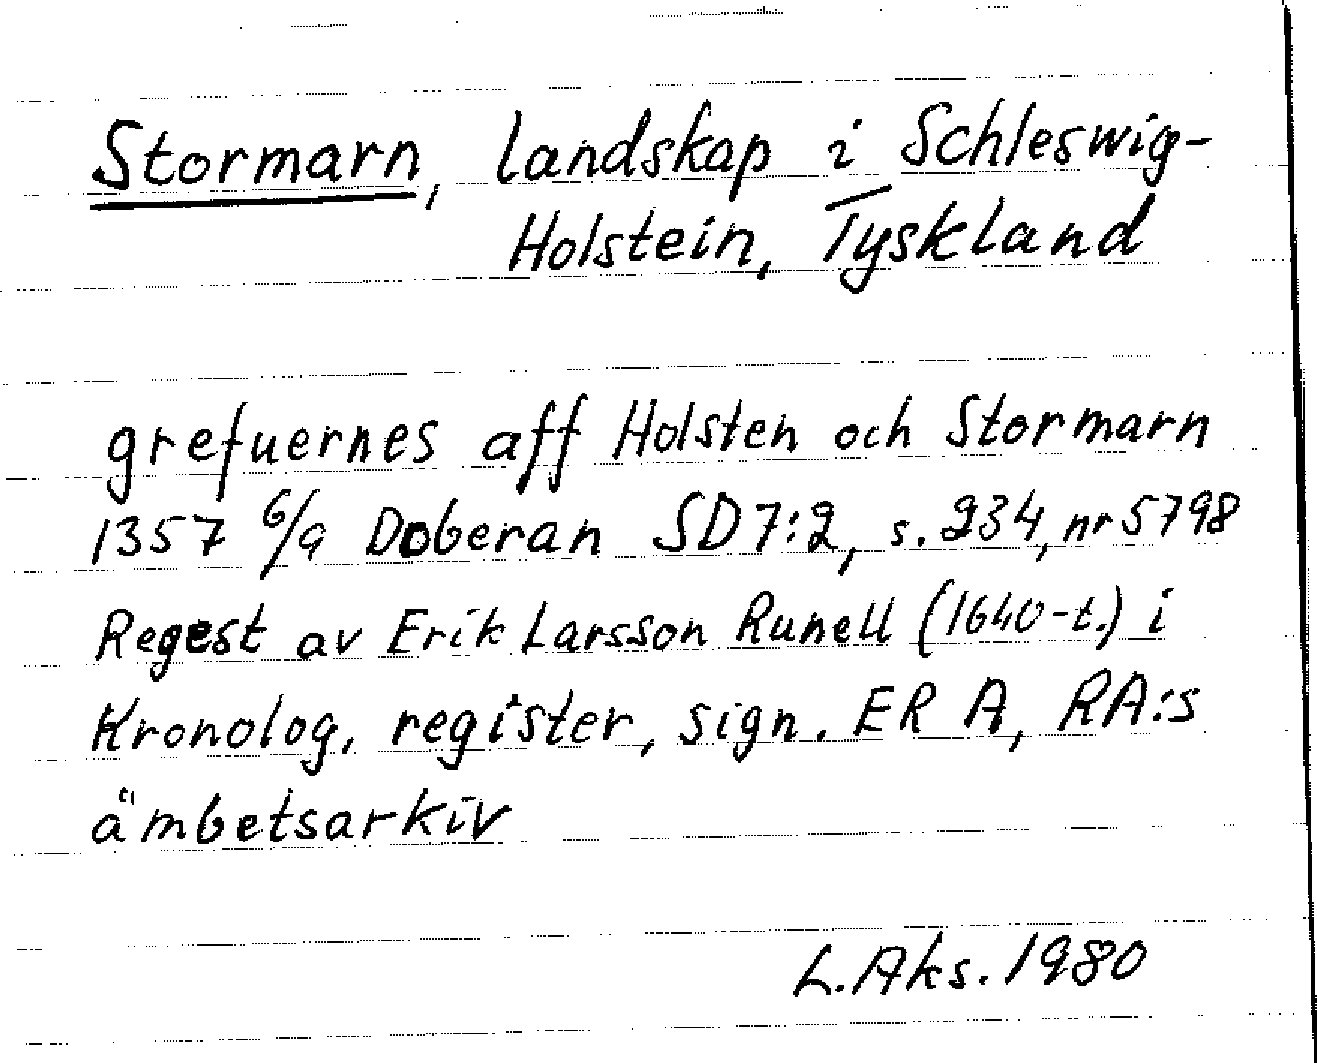 Stormarn, landskap i Schleswig-
Holstein, Tyskland
grefuernes aff Holsten och Stormarn
1357 6/9 Doberan SD 7:2, s. 234, nr 5798
Regest av Erik Larsson Runell (1640-t.) i
Kronolog. register, sign. ER A, RA:s
ämbetsarkiv
L. Aks. 1980